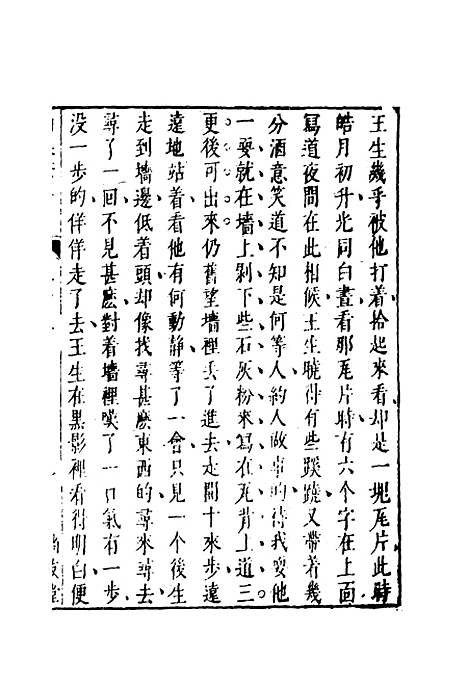 王生幾乎被他打着拾起來看却是一塊瓦片此時
皓月初升光同白晝看那瓦片時有六个字在上面
寫道夜間在此相候王生曉得有些蹊蹺又帶着幾
分酒意笑道不知是何等人約人做事的待我耍他
一耍就在墻上剝下些石灰粉來寫在瓦背上道三
更後可出來仍舊望墻裡丢了進去走開十來步遠
遠地站着看他有何動靜等了一會只見一个後生
走到墻邊低着頭却像找尋甚麽東西的尋來尋去
尋了一回不見甚麽對着墻裡嘆了一口氣有一步
没一步的佯佯走了去王生在黑影裡看得明白便
尚友堂